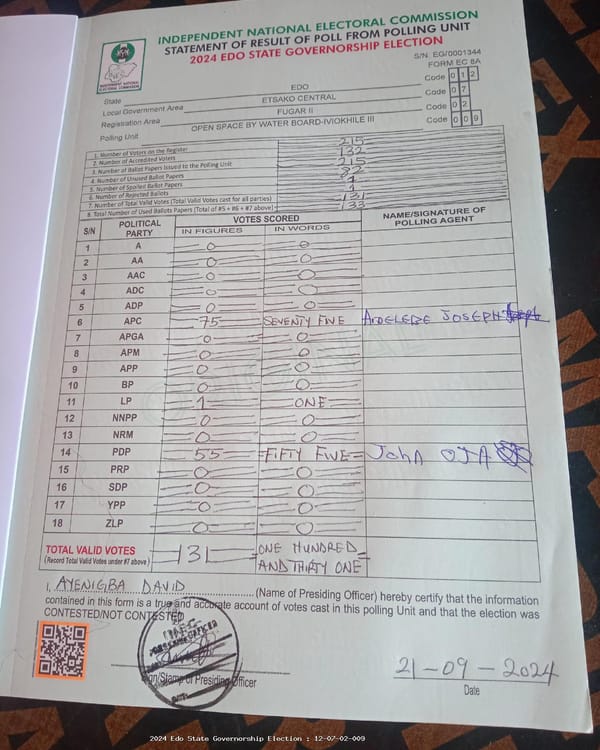 INDEPENDENT NATIONAL ELECTORAL COMMISSION
STATEMENT OF RESULT OF POLL FROM POLLING UNIT
2024 EDO STATE GOVERNORSHIP ELECTION
INDEPENDENT NATIONAL ELECTORAL COMMISSION
S/N: EG/0001344
FORM EC 8A
State EDO Code 012
Local Government Area ETSAKO CENTRAL Code 07
Registration Area FUGAR II Code 02
Polling Unit OPEN SPACE BY WATER BOARD-IVIOKHILE III Code 009
1. Number of Voters on the Register 215
2. Number of Accredited Voters 132
3. Number of Ballot Papers Issued to the Polling Unit 215
4. Number of Unused Ballot Papers 82
5. Number of Spoiled Ballot Papers 1
6. Number of Rejected Ballots 1
7. Number of Total Valid Votes (Total Valid Votes cast for all parties) 131
8. Total Number of Used Ballots Papers (Total of #5 + #6 + #7 above) 133
S/N POLITICAL PARTY VOTES SCORED NAME/SIGNATURE OF POLLING AGENT
IN FIGURES IN WORDS
1 A 0 0
2 AA 0 0
3 AAC 0 0
4 ADC 0 0
5 ADP 0 0
6 APC 75 SEVENTY FIVE ADELEBE JOSEPH
7 APGA 0 0
8 APM 0 0
9 APP 0 0
10 BP 0 0
11 LP 1 ONE
12 NNPP 0 0
13 NRM 0 0
14 PDP 55 FIFTY FIVE John OJA
15 PRP 0 0
16 SDP 0 0
17 YPP 0 0
18 ZLP 0 0
TOTAL VALID VOTES 131 ONE HUNDRED
(Record Total Valid Votes under #7 above) AND THIRTY ONE
I, AYENIGBA DAVID (Name of Presiding Officer) hereby certify that the information
contained in this form is a true and accurate account of votes cast in this polling Unit and that the election was
CONTESTED/NOT CONTESTED
INEC
PRESIDING OFFICER
Sign/Stamp of Presiding Officer
21-09-2024
Date
2024 Edo State Governorship Election : 12-07-02-009